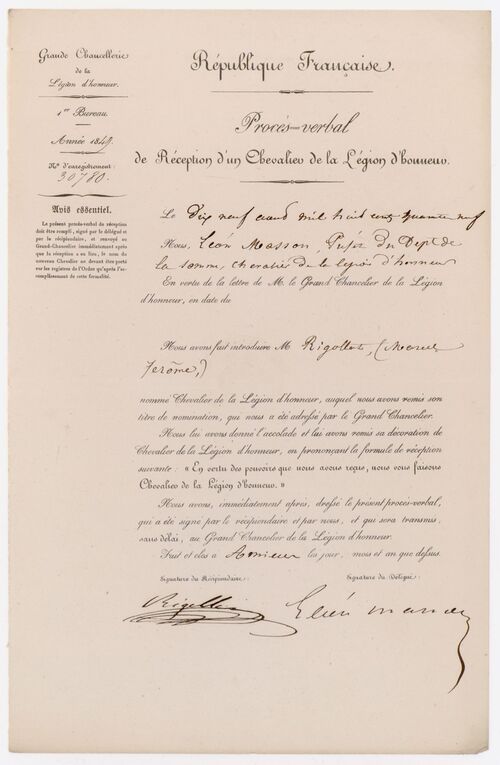 Grande Chancellerie
de la
Légion d'honneur.
1er Bureau.
Année 1849.
No d'enregistrement:
30780.
Avis essentiel.
Le présent procès-verbal de réception
doit être rempli, signé par le délégué et
par le récipiendaire, et renvoyé au
Grand-Chancelier immédiatement après
que la réception a eu lieu, le nom du
nouveau Chevalier ne devant être porté
sur les registres de l'Ordre qu'après l'ac-
complissement de cette formalité.
République Française.
Procès-verbal
de Réception d'un Chevalier de la Légion d'honneur.
Le dix neuf aoud mil huit cent quarante neuf
Nous, Léon Masson, Préfet du Dept de
la Somme, chevalier de la légion d'honneur
En vertu de la lettre de M. le Grand Chancelier de la Légion
d'honneur, en date du
Nous avons fait introduire M. Rigollot, (Marcel
Jerôme,)
nommé Chevalier de la Légion d'honneur, auquel nous avons remis son
titre de nomination, qui nous a été adressé par le Grand Chancelier.
Nous lui avons donné l'accolade et lui avons remis sa décoration de
Chevalier de la Légion d'honneur, en prononçant la formule de réception
suivante : « En vertu des pouvoirs que nous avons reçus, nous vous faisons
Chevalier de la Légion d'honneur. »
Nous avons, immédiatement après, dressé le présent procès-verbal,
qui a été signé par le récipiendaire et par nous, et qui sera transmis,
sans délai, au Grand Chancelier de la Légion d'honneur.
Fait et clos à Amiens les jour, mois et an que dessus.
Signature du Récipiendaire :
Signature du Délégué :
Rigollot